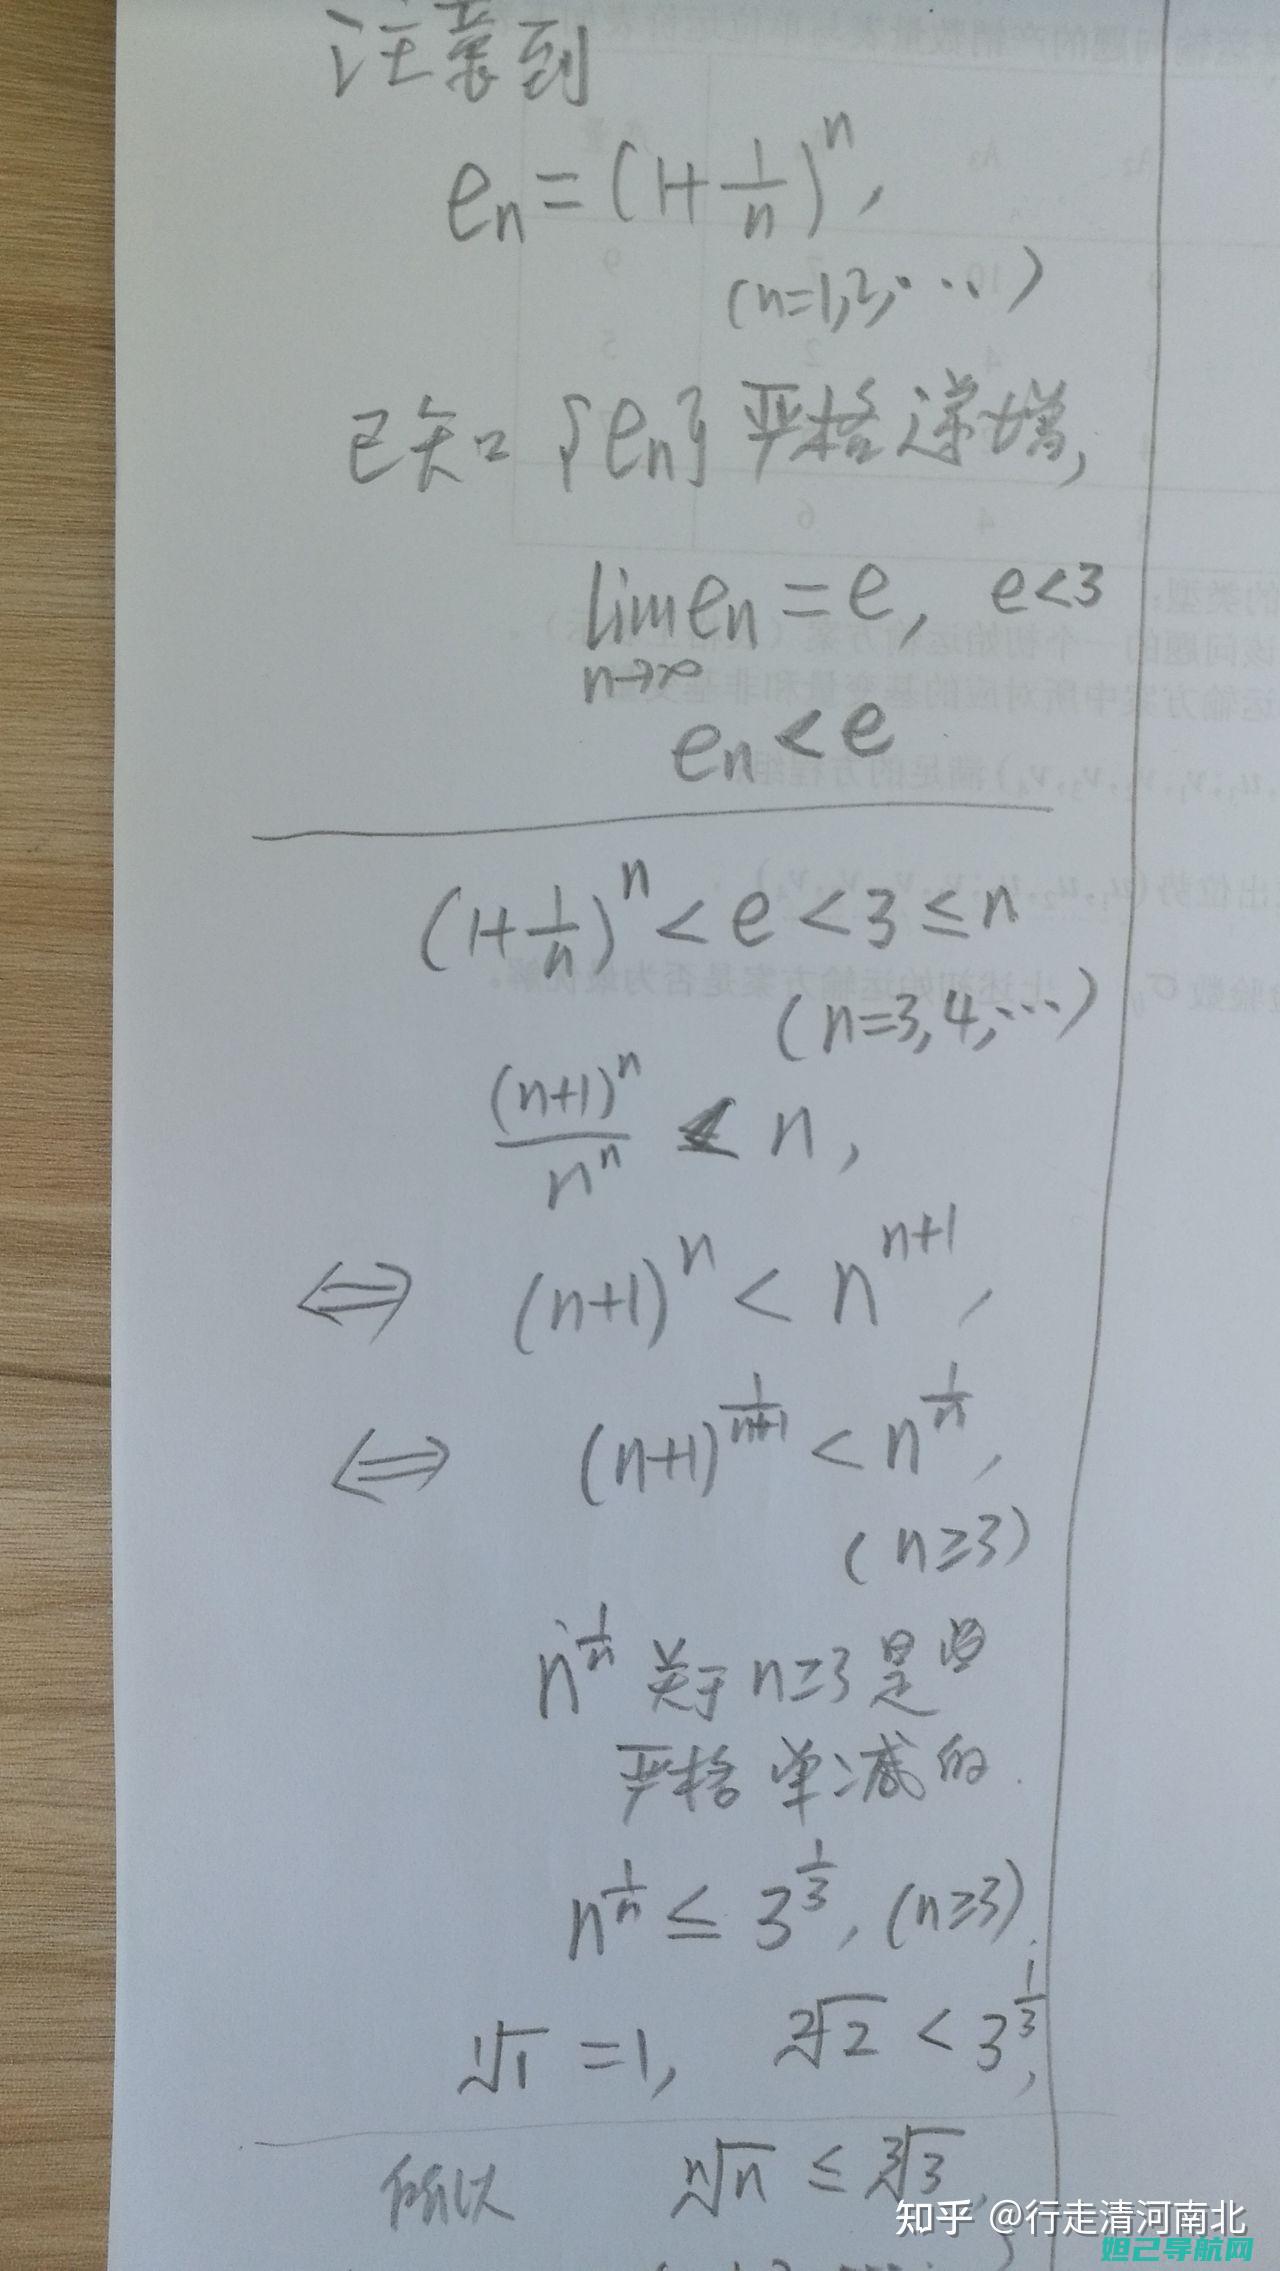 注意到
eₙ = (1+1/n)ⁿ,
(n=1,2,…)
已知{eₙ}严格递增,
lim eₙ = e, e<3
n→∞
eₙ < e
(1+1/n)ⁿ < e < 3 ≤ n
(n=3,4,…)
(n+1)ⁿ/nⁿ < n,
⟺ (n+1)ⁿ < nⁿ⁺¹,
⟺ (n+1)^(1/(n+1)) < n^(1/n),
(n≥3)
n^(1/n) 关于n≥3是
严格单减的.
n^(1/n) ≤ 3^(1/3), (n≥3).
¹√1 = 1, ²√2 < 3^(1/3),
所以 ⁿ√n ≤ ³√3,
知乎 @行走清河南北
妲己导航网